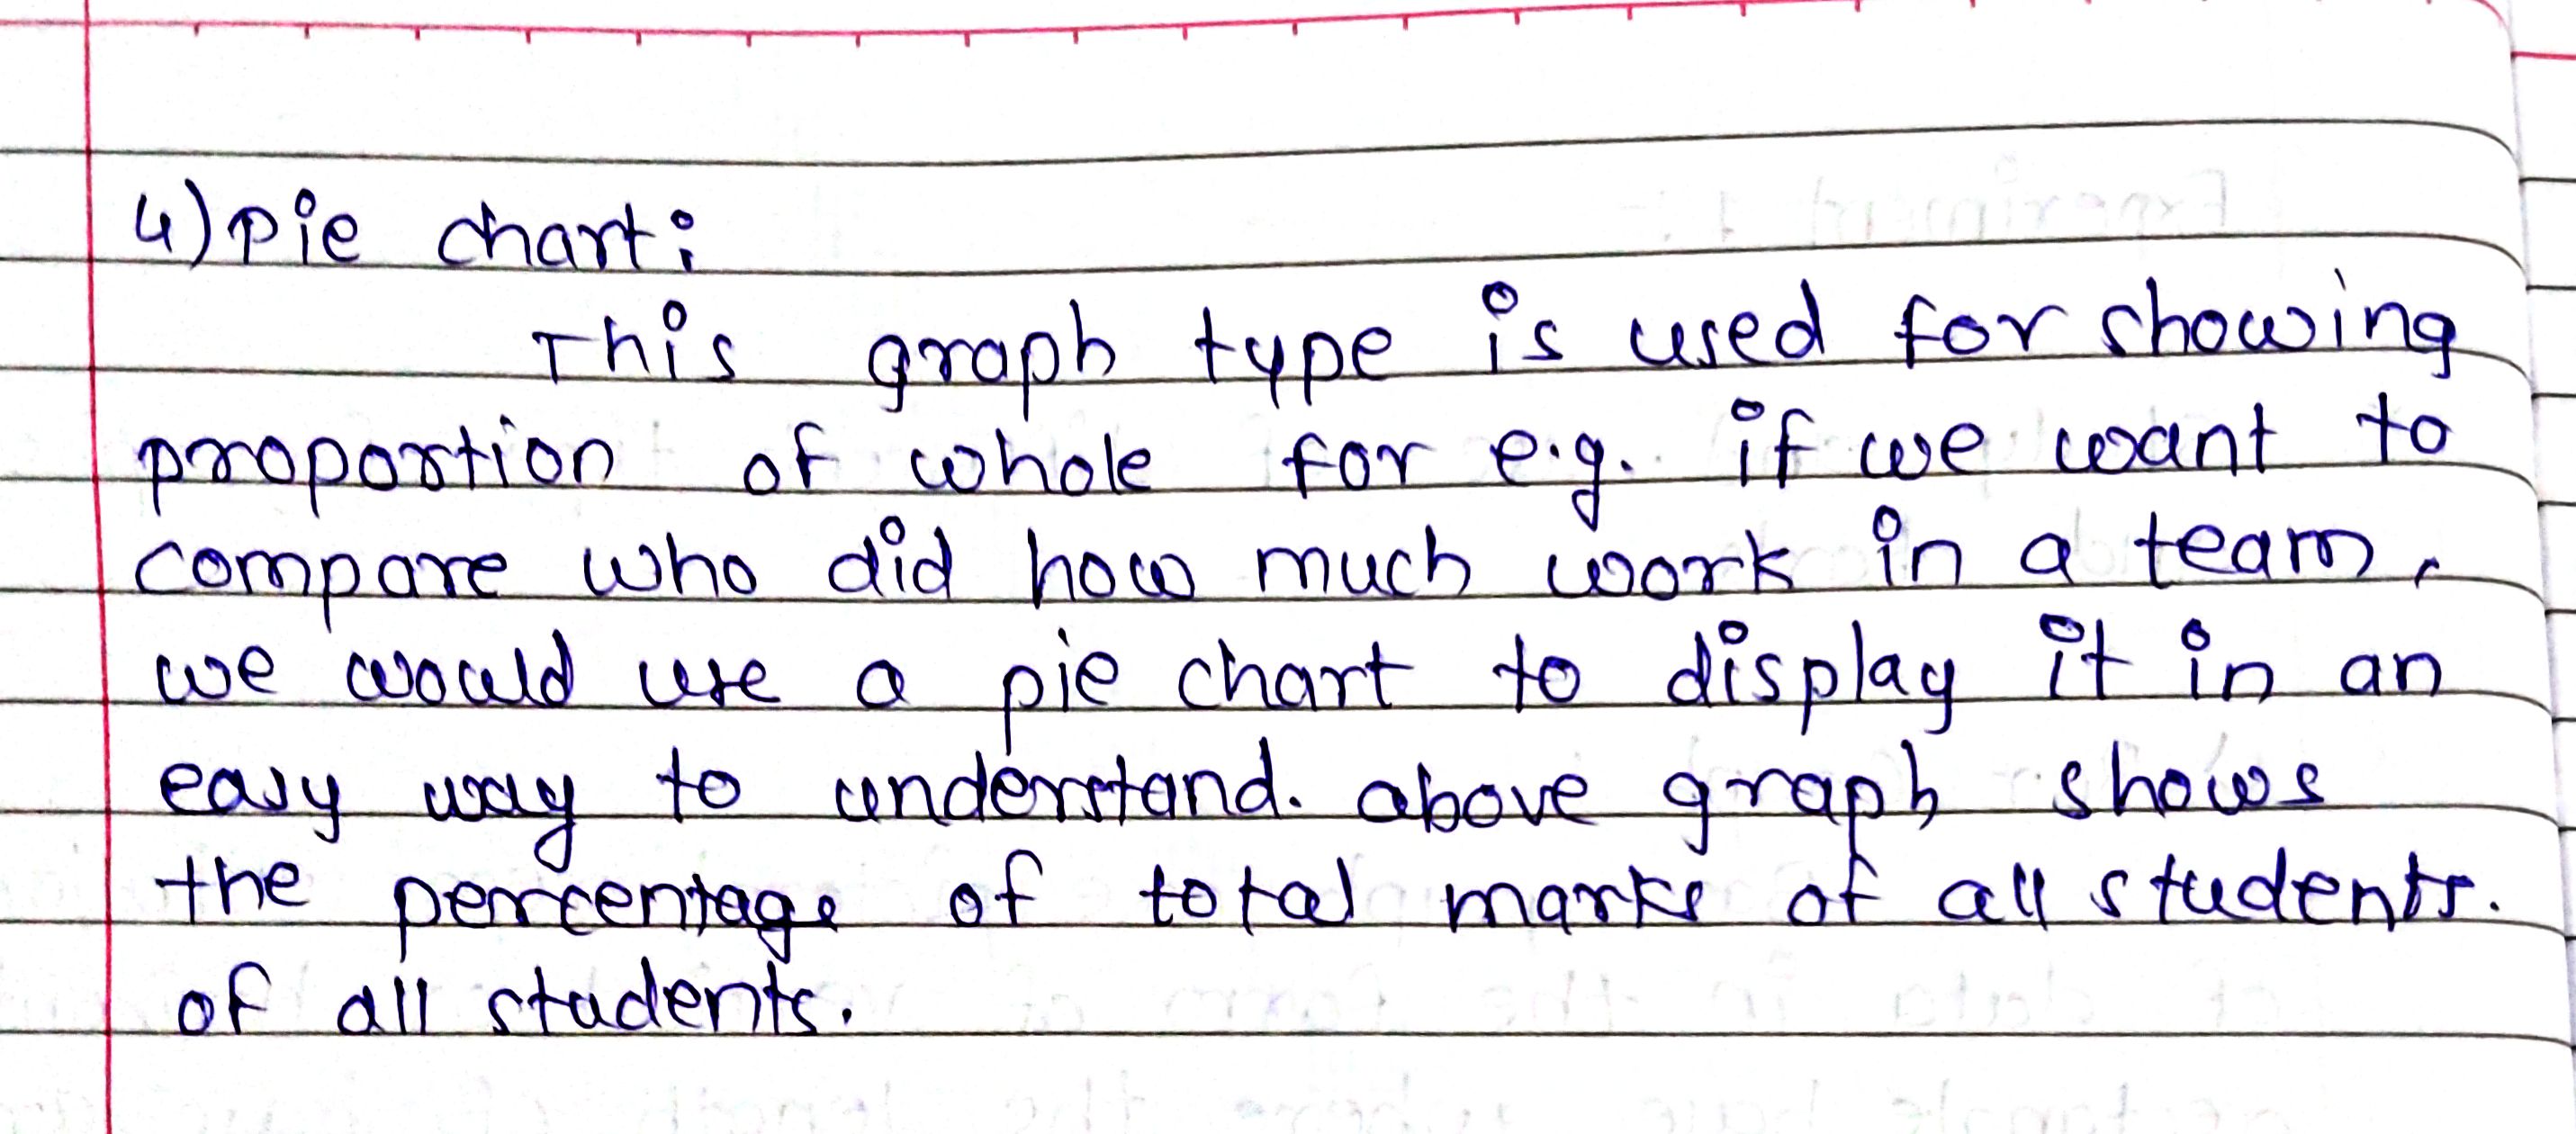 4) Pie chart:
This graph type is used for showing
proportion of whole for e.g. if we want to
compare who did how much work in a team,
we would use a pie chart to display it in an
easy way to understand. above graph shows
the percentage of total marks of all students.
of all students.